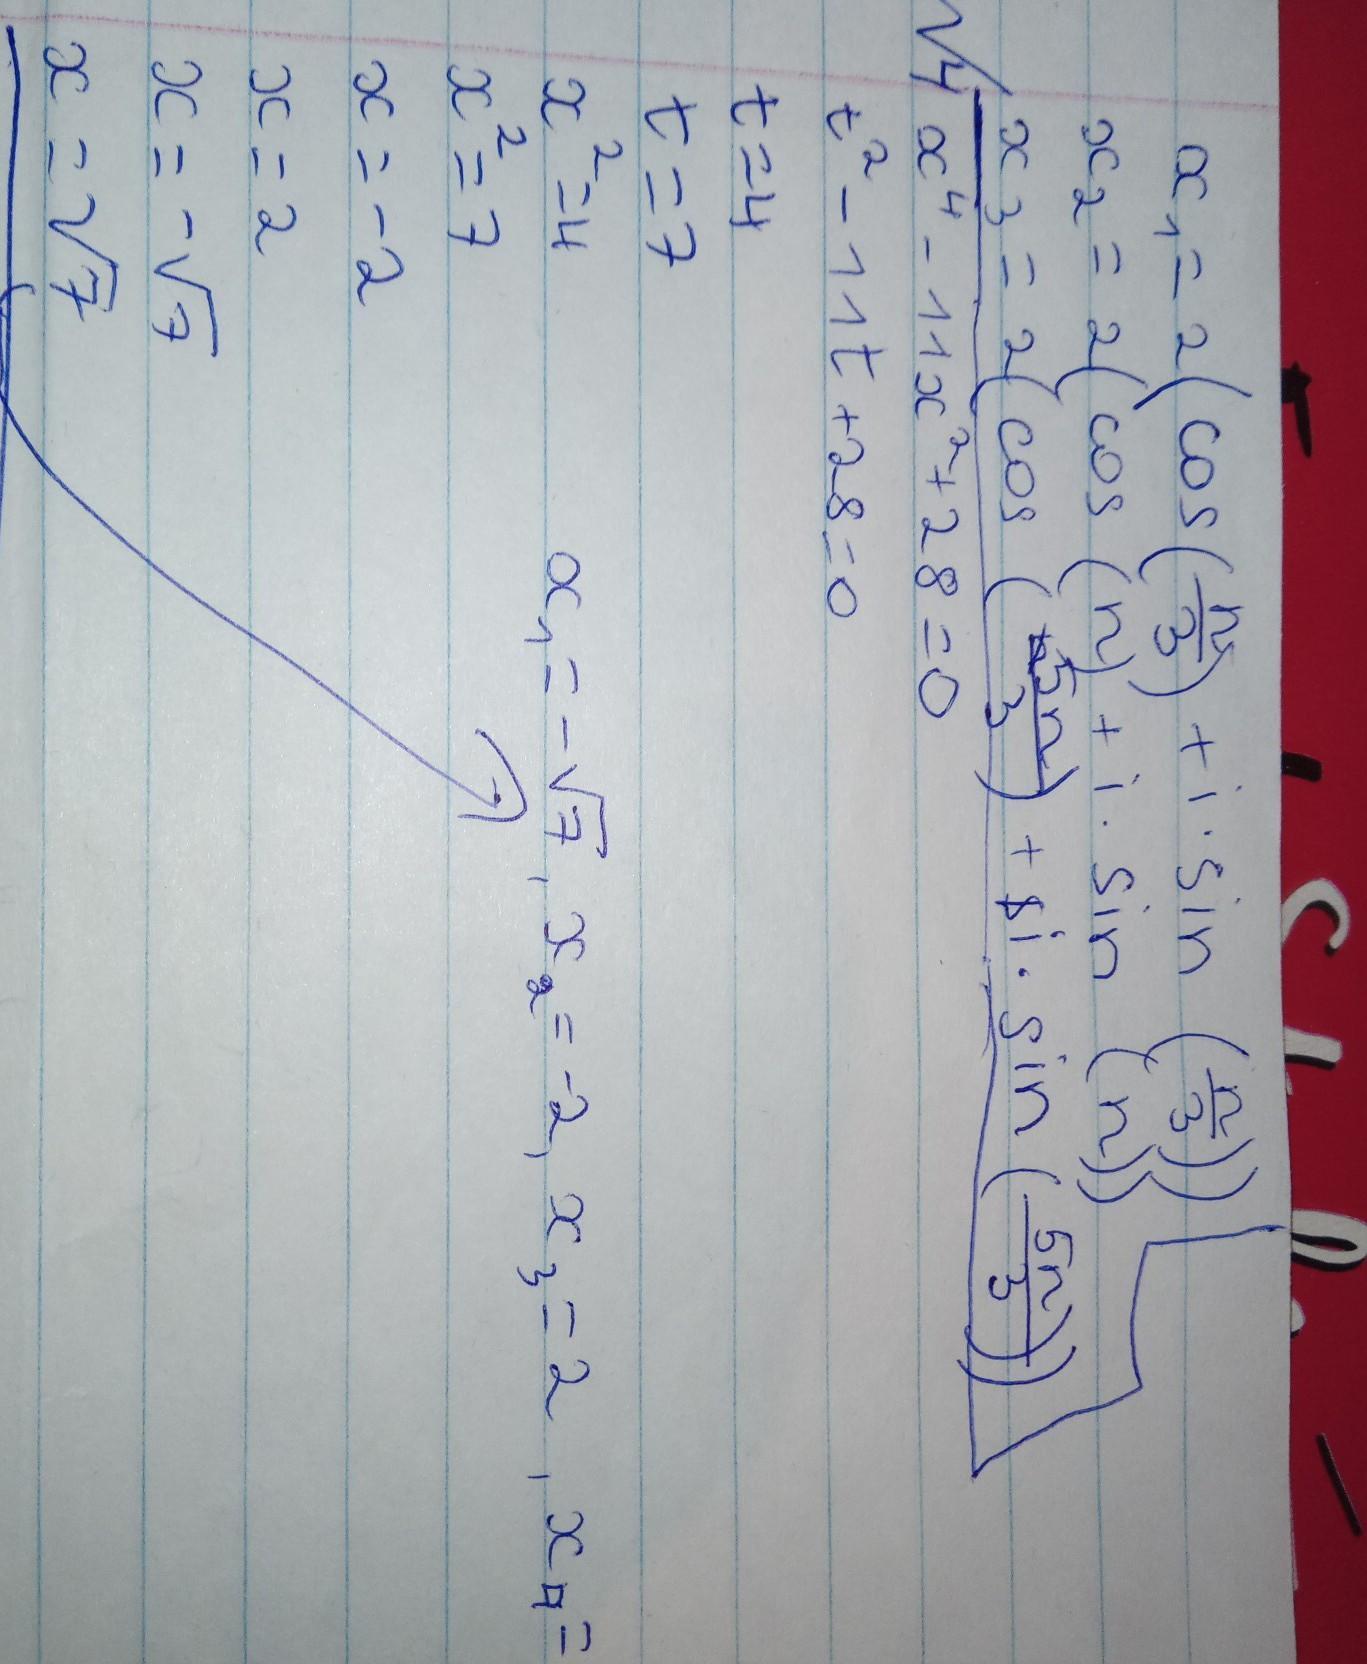 x₁ = 2(cos(π/3) + i · sin(π/3))
x₂ = 2(cos(π) + i · sin(π))
x₃ = 2(cos(5π/3) + i · sin(5π/3))
√4 x⁴ - 11x² + 28 = 0
t² - 11t + 28 = 0
t = 4
t = 7
x² = 4
x² = 7
x = -2
x = 2
x = -√7
x = √7
x₁ = -√7, x₂ = -2, x₃ = 2, x₄ =